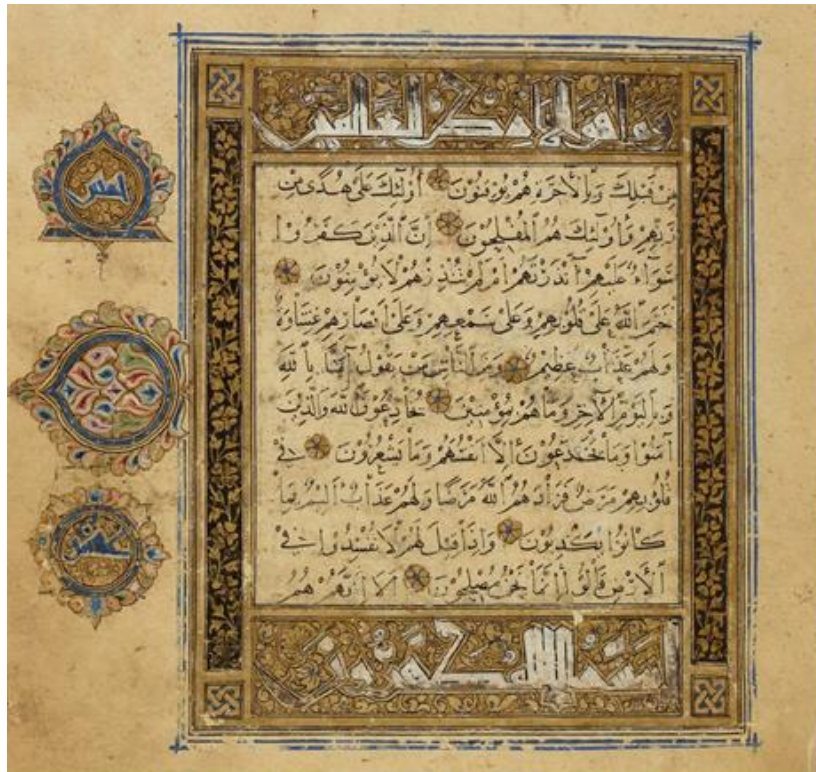 وما هو إلا ذكر للعالمين
مِنْ قَبْلِكَ وَبِالْآخِرَةِ هُمْ يُوقِنُونَ أُولَئِكَ عَلَى هُدًى مِنْ
رَبِّهِمْ وَأُولَئِكَ هُمُ الْمُفْلِحُونَ إِنَّ الَّذِينَ كَفَرُوا
سَوَاءٌ عَلَيْهِمْ أَنْذَرْتَهُمْ أَمْ لَمْ تُنْذِرْهُمْ لَا يُؤْمِنُونَ
خَتَمَ اللَّهُ عَلَى قُلُوبِهِمْ وَعَلَى سَمْعِهِمْ وَعَلَى أَبْصَارِهِمْ غِشَاوَةٌ
وَلَهُمْ عَذَابٌ عَظِيمٌ وَمِنَ النَّاسِ مَنْ يَقُولُ آمَنَّا بِاللَّهِ
وَبِالْيَوْمِ الْآخِرِ وَمَا هُمْ بِمُؤْمِنِينَ يُخَادِعُونَ اللَّهَ وَالَّذِينَ
آمَنُوا وَمَا يَخْدَعُونَ إِلَّا أَنْفُسَهُمْ وَمَا يَشْعُرُونَ فِي
قُلُوبِهِمْ مَرَضٌ فَزَادَهُمُ اللَّهُ مَرَضًا وَلَهُمْ عَذَابٌ أَلِيمٌ بِمَا
كَانُوا يَكْذِبُونَ وَإِذَا قِيلَ لَهُمْ لَا تُفْسِدُوا فِي
الْأَرْضِ قَالُوا إِنَّمَا نَحْنُ مُصْلِحُونَ أَلَا إِنَّهُمْ هُمُ
خمس
عشر